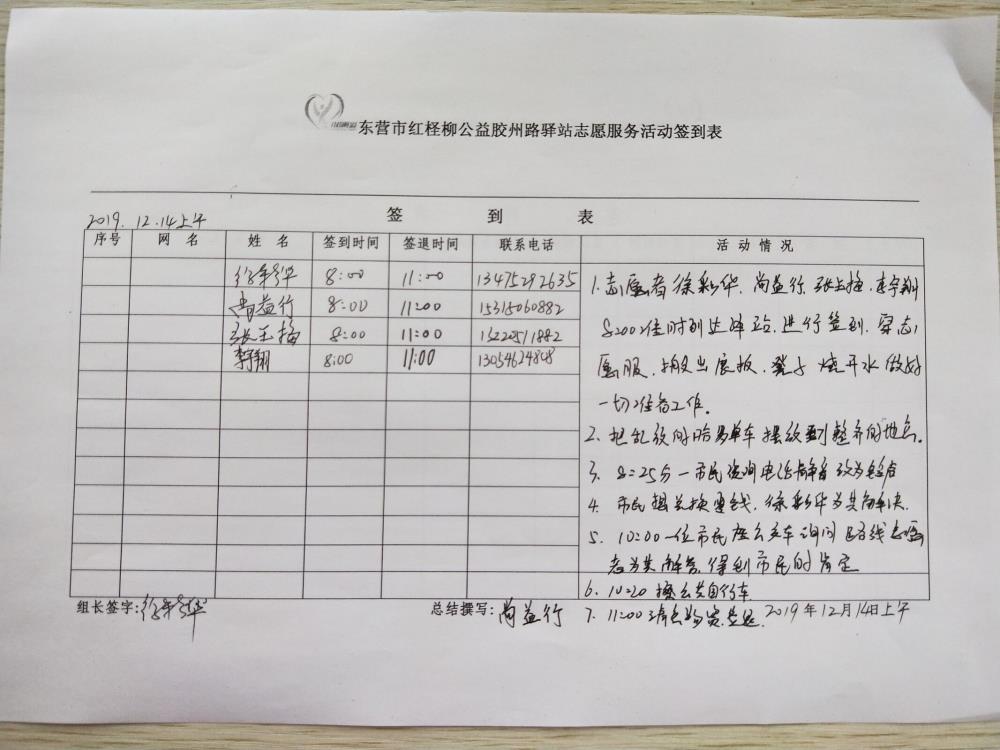 东营市红柽柳公益胶州路驿站志愿服务活动签到表
签 到 表
2019. 12.14上午
序号 网 名 姓 名 签到时间 签退时间 联系电话 活 动 情 况
徐彩华 8:00 11:00 13475292635
尚益行 8:00 11:00 15315060882
张玉梅 8:00 11:00
李宇翔 8:00 11:00 13054624848
1.志愿者徐彩华.尚益行.张玉梅.李宇翔
8:00准时到达驿站.进行签到.穿志
愿服.搬出展板.凳子 烧开水 做好
一切准备工作.
2.把乱放的哈罗单车摆放到整齐的地点.
3. 8:25分一市民咨询电话静音
4. 市民 兑换零钱.徐彩华为其解决.
5. 10:00一位市民 公交车询问路线志愿
者为其解答.得到市民的肯定
6. 10:20 摆公共自行车
7. 11:00
组长签字:徐彩华 总结撰写:尚益行 2019年12月14日上午